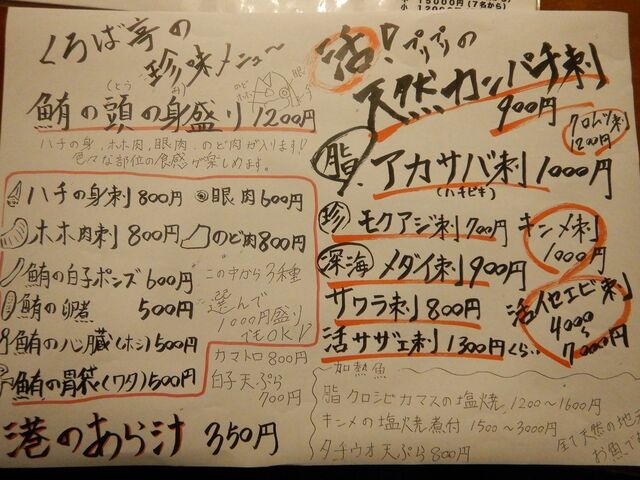 15000円(7名から)
くろば亭の
珍味メニュー
鮪の頭の身盛り 1200円
(とう)(み)
のど ホホ 眼 ハチ
ハチの身、ホホ肉、眼肉、のど肉が入ります!
色々な部位の食感が楽しめます。
ハチの身刺 800円 眼肉 600円
ホホ肉刺 800円 のど肉 800円
鮪の白子ポンズ 600円
鮪の卵煮 500円
鮪の心臓(ホシ) 500円
鮪の胃袋(ワタ) 500円
この中から3種
選んで
1000円盛り
でもOK♪
カマトロ 800円
白子天ぷら
700円
港のあら汁 350円
活!プリプリの
天然カンパチ刺
900円
クロムツ刺
1200円
脂 アカサバ刺 1000円
(ハチビキ)
珍 モクアジ刺 700円
キンメ刺
1000円
深海 メダイ刺 900円
サワラ刺 800円
活サザエ刺 1300円くらい
活イセエビ刺
4000
〜
7000円
加熱魚
脂 クロシビカマスの塩焼 1200〜1600円
キンメの塩焼煮付 1500〜3000円
タチウオ天ぷら 800円
全て天然の地
お魚で